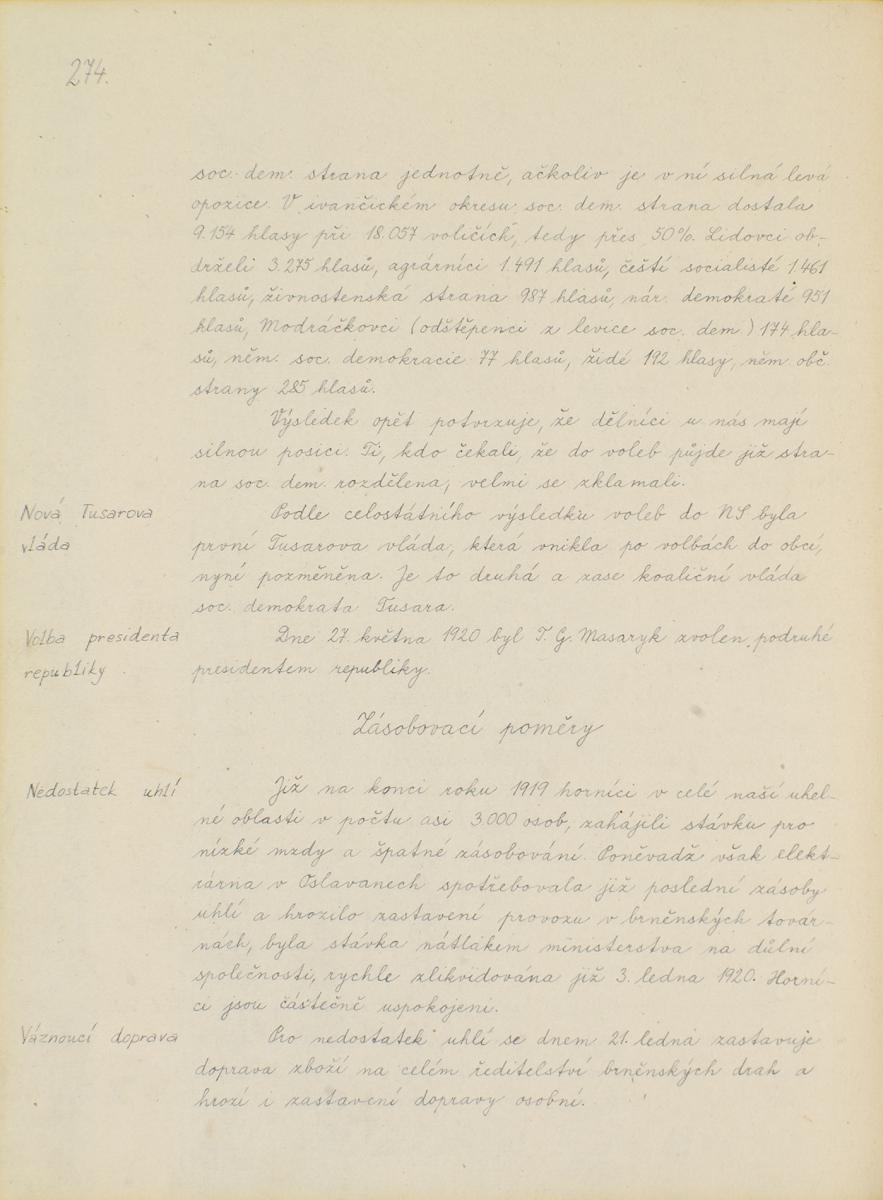 274.
soc. dem. strana jednotně, ačkoliv je v ní silná levá
opozice. V ivančickém okresu soc. dem. strana dostala
9.154 hlasy při 18.057 voličích, tedy přes 50%. Lidovci ob-
drželi 3.275 hlasů, agrárníci 1.491 hlasů, čeští socialisté 1.461
hlasů, živnostenská strana 987 hlasů, nár. demokraté 951
hlasů, Modráčkovci (odštěpenci z levice soc. dem.) 174 hla-
sů, něm. soc. demokracie 77 hlasů, židé 192 hlasy, něm. obč.
strany 285 hlasů.
Výsledek opět potvrzuje, že dělníci u nás mají
silnou posici. Ti, kdo čekali, že do voleb půjde již stra-
na soc. dem. rozdělena, velmi se zklamali.
Nová Tusarova
vláda
Podle celostátního výsledku voleb do NS byla
první Tusarova vláda, která vnikla po volbách do obcí,
nyní pozměněna. Je to druhá a zase koaliční vláda
soc. demokrata Tusara.
Volba presidenta
republiky
Dne 27. května 1920 byl T. G. Masaryk zvolen podruhé
presidentem republiky.
Zásobovací poměry
Nedostatek uhlí
Již na konci roku 1919 horníci v celé naší uhel-
né oblasti v počtu asi 3.000 osob, zahájili stávku pro
nízké mzdy a špatné zásobování. Poněvadž však elekt-
rárna v Oslavanech spotřebovala již poslední zásoby
uhlí a hrozilo zastavení provozu v brněnských továr-
nách, byla stávka nátlakem ministerstva na důlní
společnosti, rychle zlikvidována již 3. ledna 1920. Horní-
ci jsou částečně uspokojeni.
Váznoucí doprava
Pro nedostatek uhlí se dnem 21. ledna zastavuje
doprava zboží na celém ředitelství brněnských drah a
hrozí i zastavení dopravy osobní.